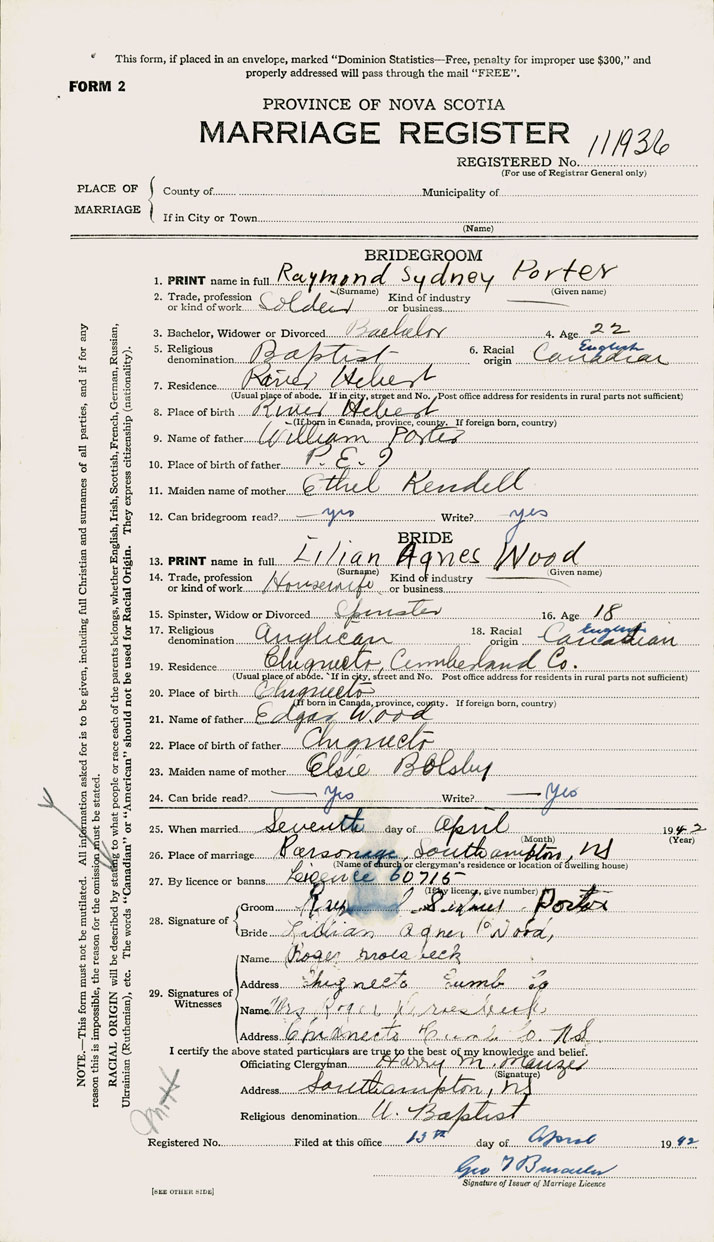 This form, if placed in an envelope, marked "Dominion Statistics—Free, penalty for improper use $300," and
properly addressed will pass through the mail "FREE".
FORM 2
PROVINCE OF NOVA SCOTIA
MARRIAGE REGISTER
REGISTERED No. 111936
(For use of Registrar General only)
PLACE OF MARRIAGE
County of Municipality of
If in City or Town
(Name)
BRIDEGROOM
1. PRINT name in full Raymond Sydney Porter
(Surname) (Given name)
2. Trade, profession or kind of work Soldier Kind of industry or business
3. Bachelor, Widower or Divorced Bachelor 4. Age 22
5. Religious denomination Baptist 6. Racial origin Canadian English
7. Residence River Hebert
(Usual place of abode. If in city, street and No. Post office address for residents in rural parts not sufficient)
8. Place of birth River Hebert
(If born in Canada, province, county. If foreign born, country)
9. Name of father William Porter
10. Place of birth of father P.E.I
11. Maiden name of mother Ethel Kendell
12. Can bridegroom read? yes Write? yes
BRIDE
13. PRINT name in full Lilian Agnes Wood
(Surname) (Given name)
14. Trade, profession or kind of work Housewife Kind of industry or business
15. Spinster, Widow or Divorced Spinster 16. Age 18
17. Religious denomination Anglican 18. Racial origin Canadian English
19. Residence Chignecto, Cumberland Co.
(Usual place of abode. If in city, street and No. Post office address for residents in rural parts not sufficient)
20. Place of birth Chignecto
(If born in Canada, province, county. If foreign born, country)
21. Name of father Edgar Wood
22. Place of birth of father Chignecto
23. Maiden name of mother Elsie Bolsby
24. Can bride read? Yes Write? Yes
25. When married Seventh day of April 1942
(Month) (Year)
26. Place of marriage Parsonage, Southampton, NS
(Name of church or clergyman's residence or location of dwelling house)
27. By licence or banns Licence 60715
(If by licence, give number)
28. Signature of
Groom Porter
Bride Lillian Agnes Wood,
29. Signatures of Witnesses
Name Roger
Address Chignecto Cumb Co
Name Mrs Roger
Address Chignecto Cumb Co. NS
I certify the above stated particulars are true to the best of my knowledge and belief.
Officiating Clergyman Harry M. Manzer
(Signature)
Address Southampton, NS
Religious denomination U. Baptist
Registered No. Filed at this office 13th day of April 1942
Geo T
Signature of Issuer of Marriage Licence
[SEE OTHER SIDE]
NOTE.—This form must not be mutilated. All information asked for is to be given, including full Christian and surnames of all parties, and if for any
reason this is impossible, the reason for the omission must be stated.
RACIAL ORIGIN will be described by stating to what people or race each of the parents belongs, whether English, Irish, Scottish, French, German, Russian,
Ukrainian (Ruthenian), etc. The words "Canadian" or "American" should not be used for Racial Origin. They express citizenship (nationality).